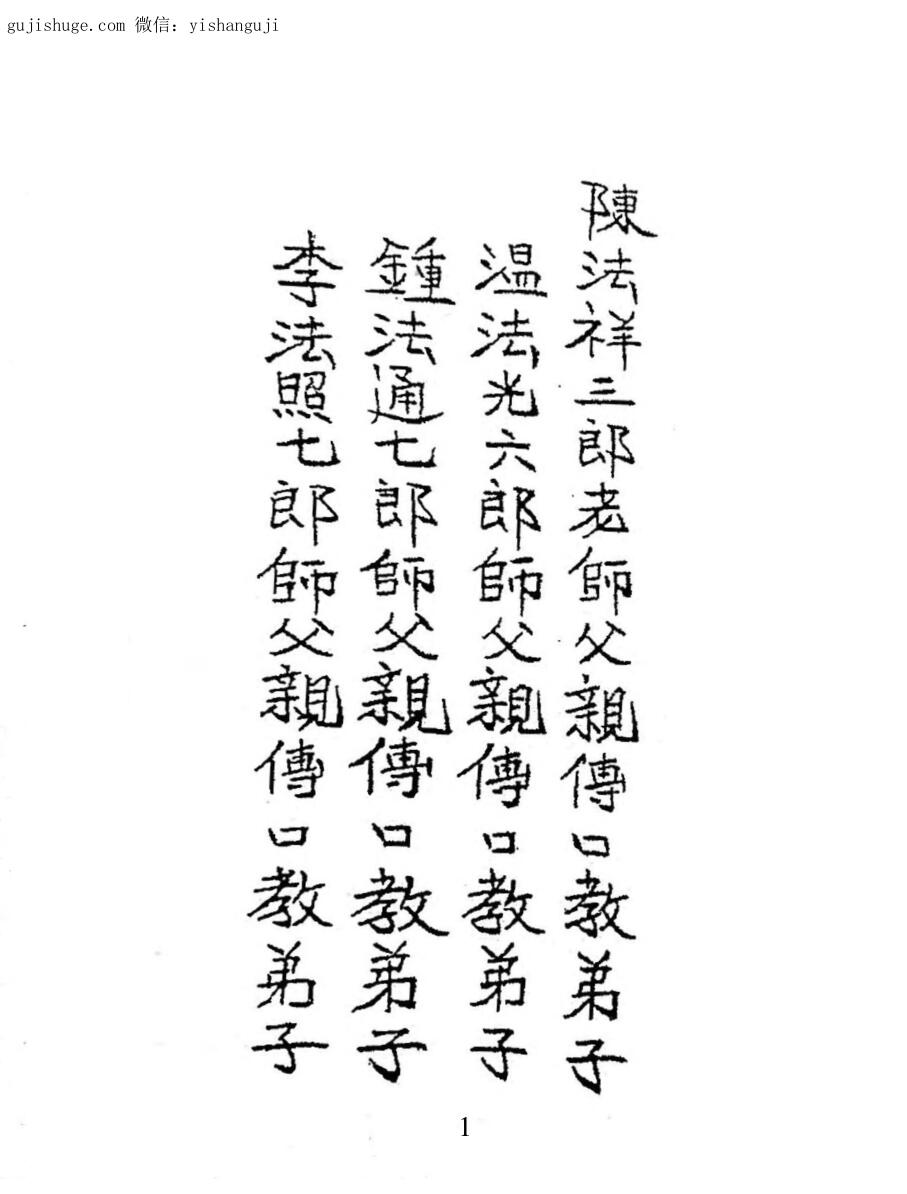 gujishuge.com 微信: yishanguji
陳法祥三郎老師父親傳口教弟子
温法光六郎師父親傳口教弟子
鍾法通七郎師父親傳口教弟子
李法照七郎師父親傳口教弟子
1